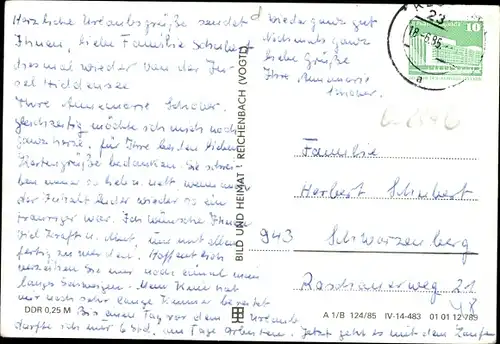 Herzliche Urlaubsgrüße sendet
Ihnen, liebe Familie Schubert
diesmal wieder von der In-
sel Hiddensee
Ihre Annemarie Schober.
gleichzeitig möchte ich mich noch
ganz herzl. für Ihre lieben
Kartengrüße bedanken. Sie schrei-
ben immer so lieb u. nett, wenn auch
der Inhalt leider wieder so ein
trauriger war. Ich wünsche Ihnen
viel Kraft u. Mut, um mit allem
fertig zu werden. Hoffentlich
verzeihen Sie mir noch einmal mein
langes Schweigen. Mein Knie hat
mir noch sehr lange Kummer bereitet
Bis einen Tag vor dem Urlaub
durfte ich nur 6 Std. am Tage arbeiten. Jetzt geht es mit dem Laufen
wieder ganz gut
Nochmals ganz
liebe Grüße
Ihre Annemarie
Schober.
BILD UND HEIMAT REICHENBACH (VOGTL)
23
18.-6.86
a
10
Familie
Herbert Schubert
943 Schwarzenberg
21
48
DDR 0,25 M
A 1/B 124/85 IV-14-483 01 01 12 789